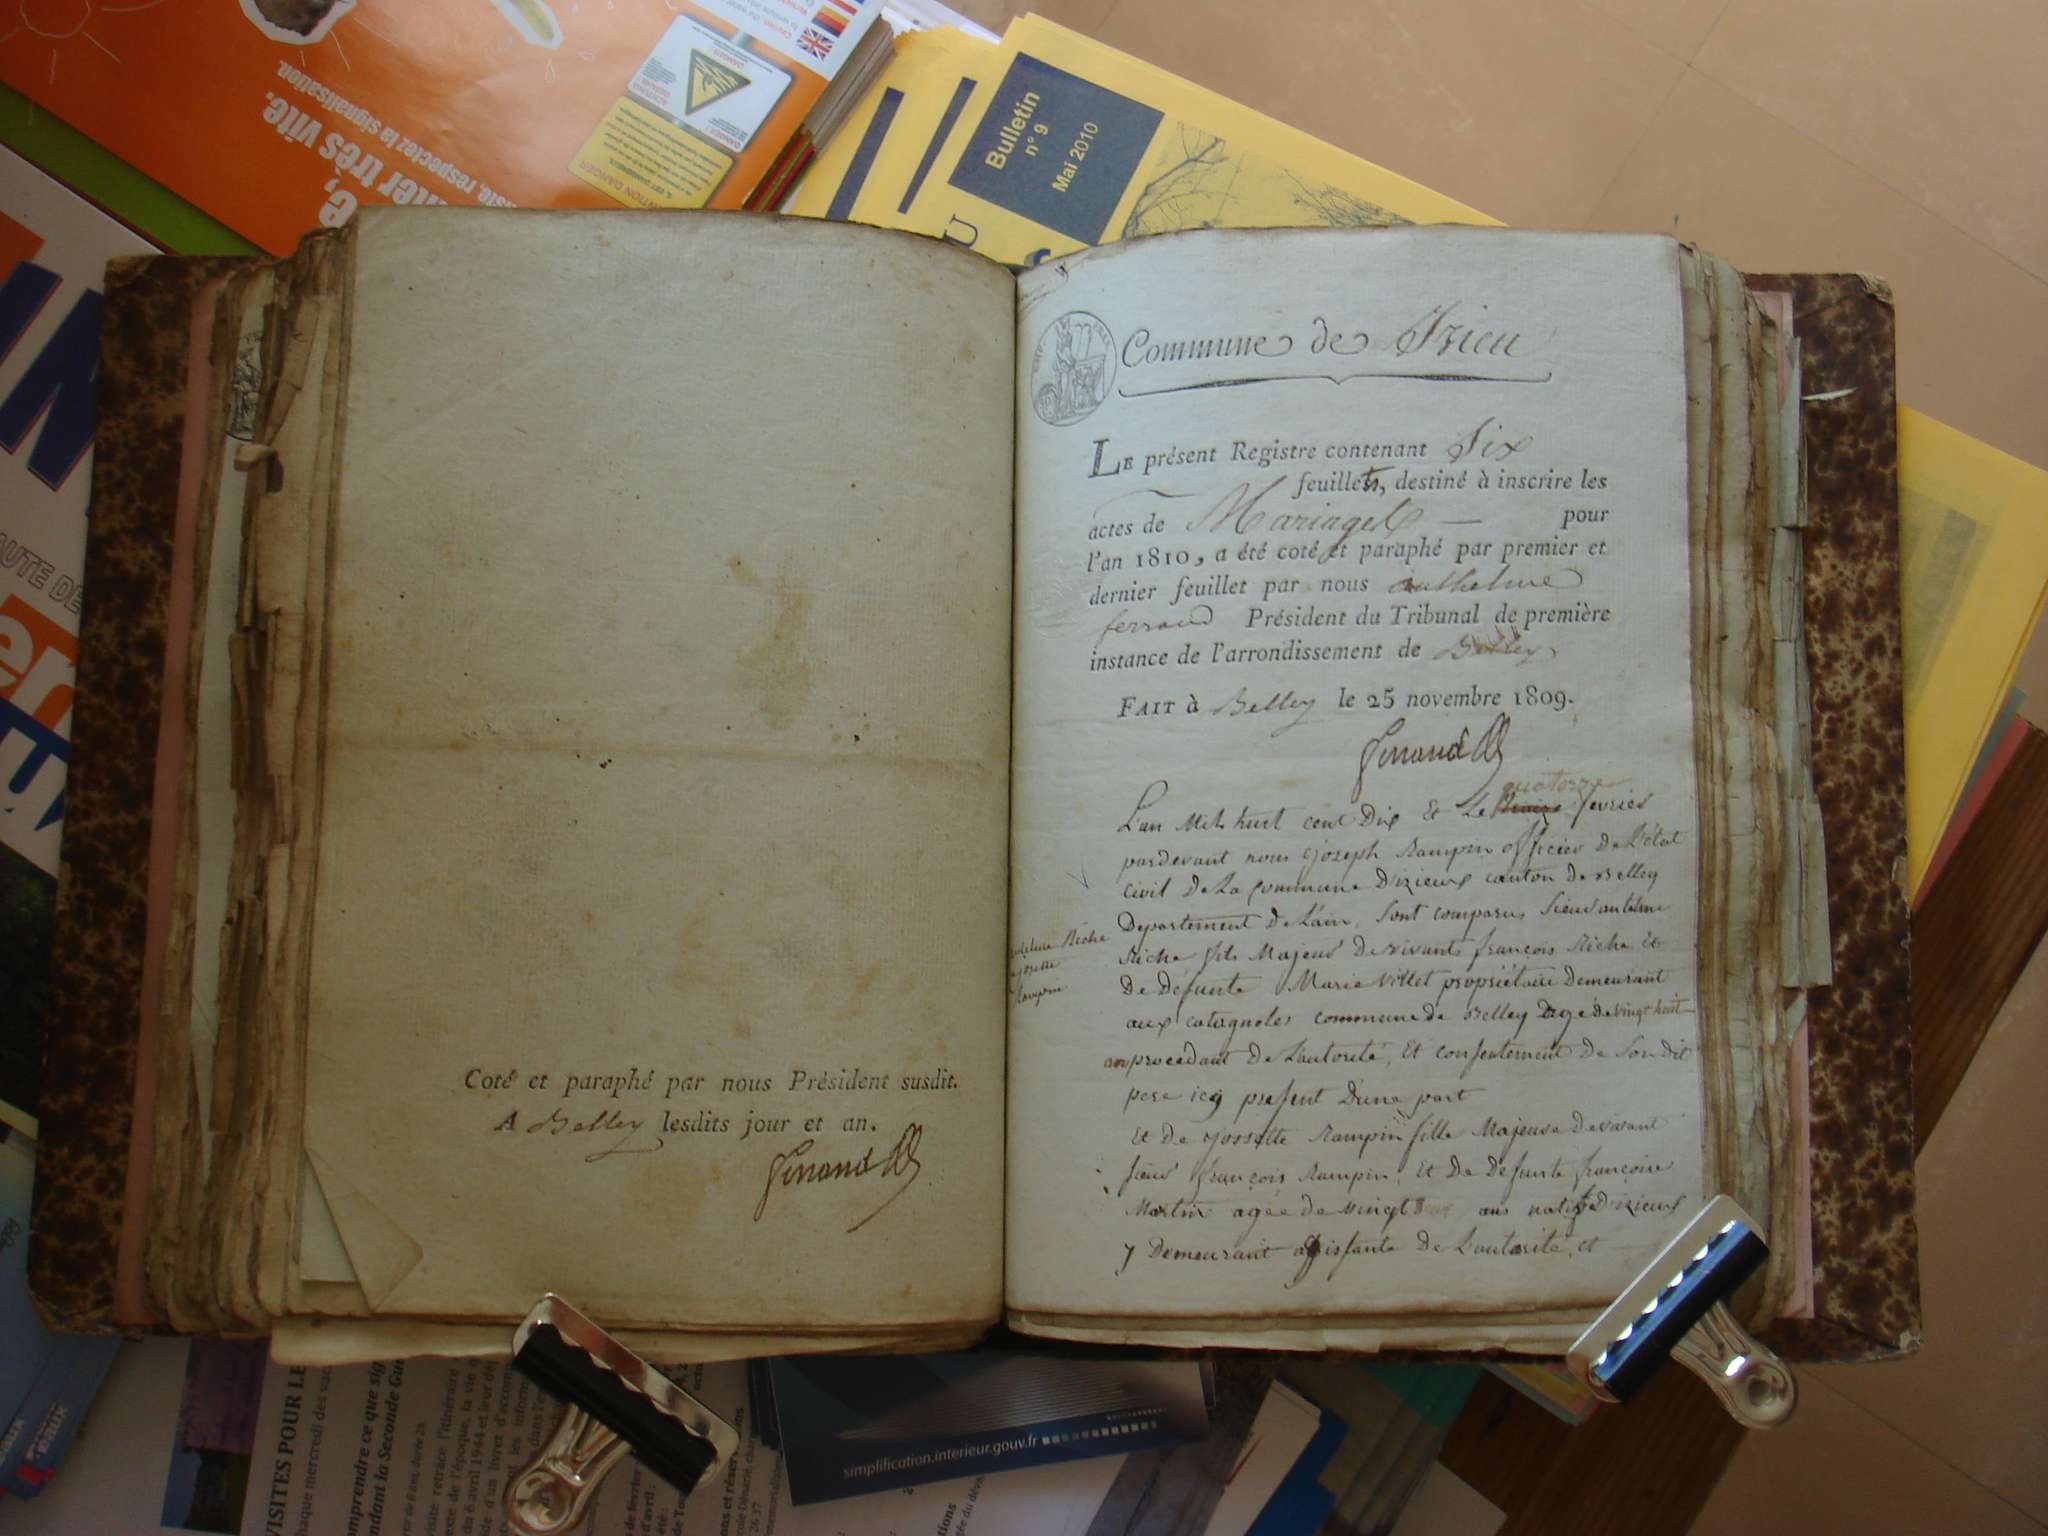 Bulletin
n° 9
Mai 2010
ATTENTION DANGER
respectez la signalisation.
très vite.
Coté et paraphé par nous Président susdit.
A Belley lesdits jour et an.
Commune de Izieu
LE présent Registre contenant Six
feuillets, destiné à inscrire les
actes de Mariages — pour
l'an 1810, a été coté et paraphé par premier et
dernier feuillet par nous anthelme
ferrand Président du Tribunal de première
instance de l'arrondissement de Belley
FAIT à Belley le 25 novembre 1809.
quatorze
L'an Mil huit cent Dix Et Le fevrier
pardevant nous joseph Rampin officier De L'état
civil De La Commune D'izieux canton de Belley
Departement De L'ain, Sont comparus Sieur antelme
Riche fils Majeur De vivants françois Riche et
De Défunte Marie Villet propriétaire Demeurant
aux catagnoles commune de Belley agé de vingt huit
an procedant De L'autorité, Et consentement De Son dit
pere icy present D'une part
Et De Josette Rampin fille Majeure De vivant
sieur françois Rampin, Et De Defunte françoise
Martin agée de vingt ans native D'izieux
y Demeurant assistante De L'autorité, et
antelme Riche
josette
VISITES POUR LE
haque mercredi des vac
omprendre ce que sig
ndant la Seconde Gue
simplification.interieur.gouv.fr